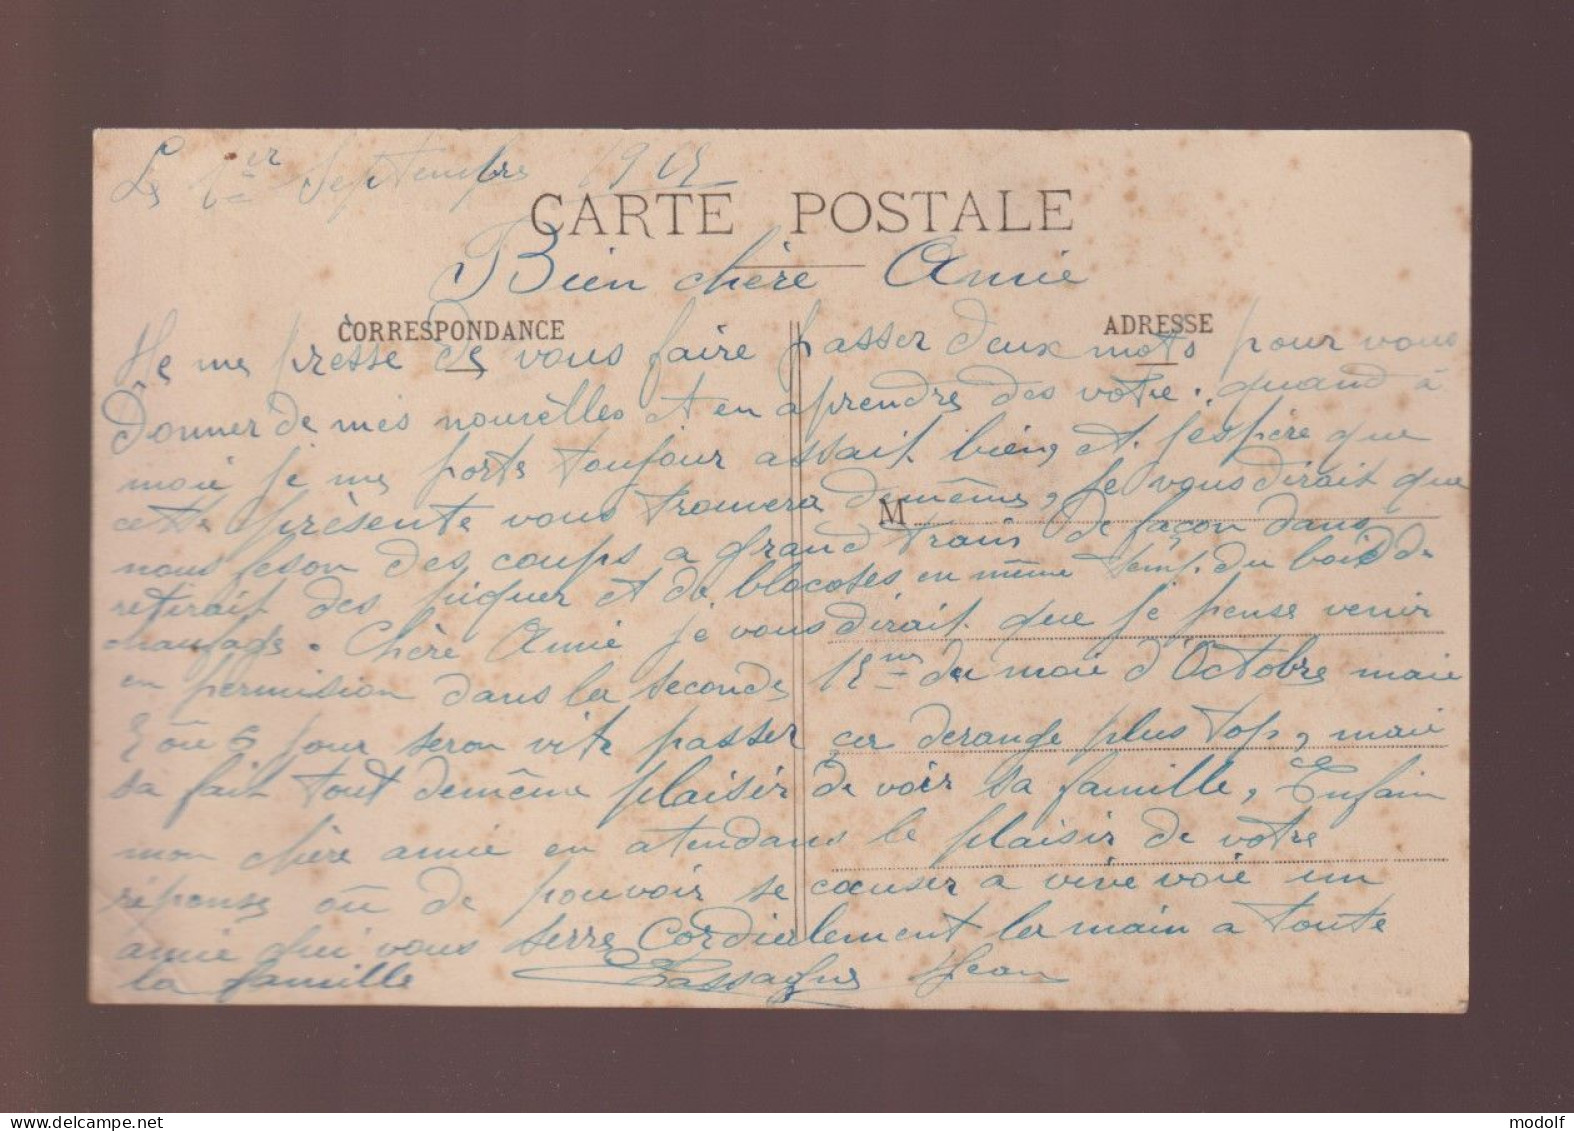 Le 1er Septembre 1915
CARTE POSTALE
Bien chère Amie
CORRESPONDANCE
ADRESSE
Je me presse de vous faire passer deux mots pour vous
Donner de mes nouvèlles et en aprendre des votre. quand à
moie je me porte toujour assait bien, et j'espère que
cette présente vous trouvera demême, Je vous dirait que
M
nous feson des coups a grand train de façon dans
retirait des piquer et de blocotes en même temp. du bois de
chaufage. Chère Amie je vous dirait que je pense venir
en permision dans la seconde 15ne du moie d'Octobre maie
5 ou 6 jour seron vite passer, car derange plus top, maie
sa fait tout demême plaisir de voir sa famille, Enfain
mon chère amie en atendans le plaisir de votre
réponse ou de pouvoir se causer a vive voie un
amie qui vous serre Cordialement la main a toute
la famille
Lassagne Jean
modolf